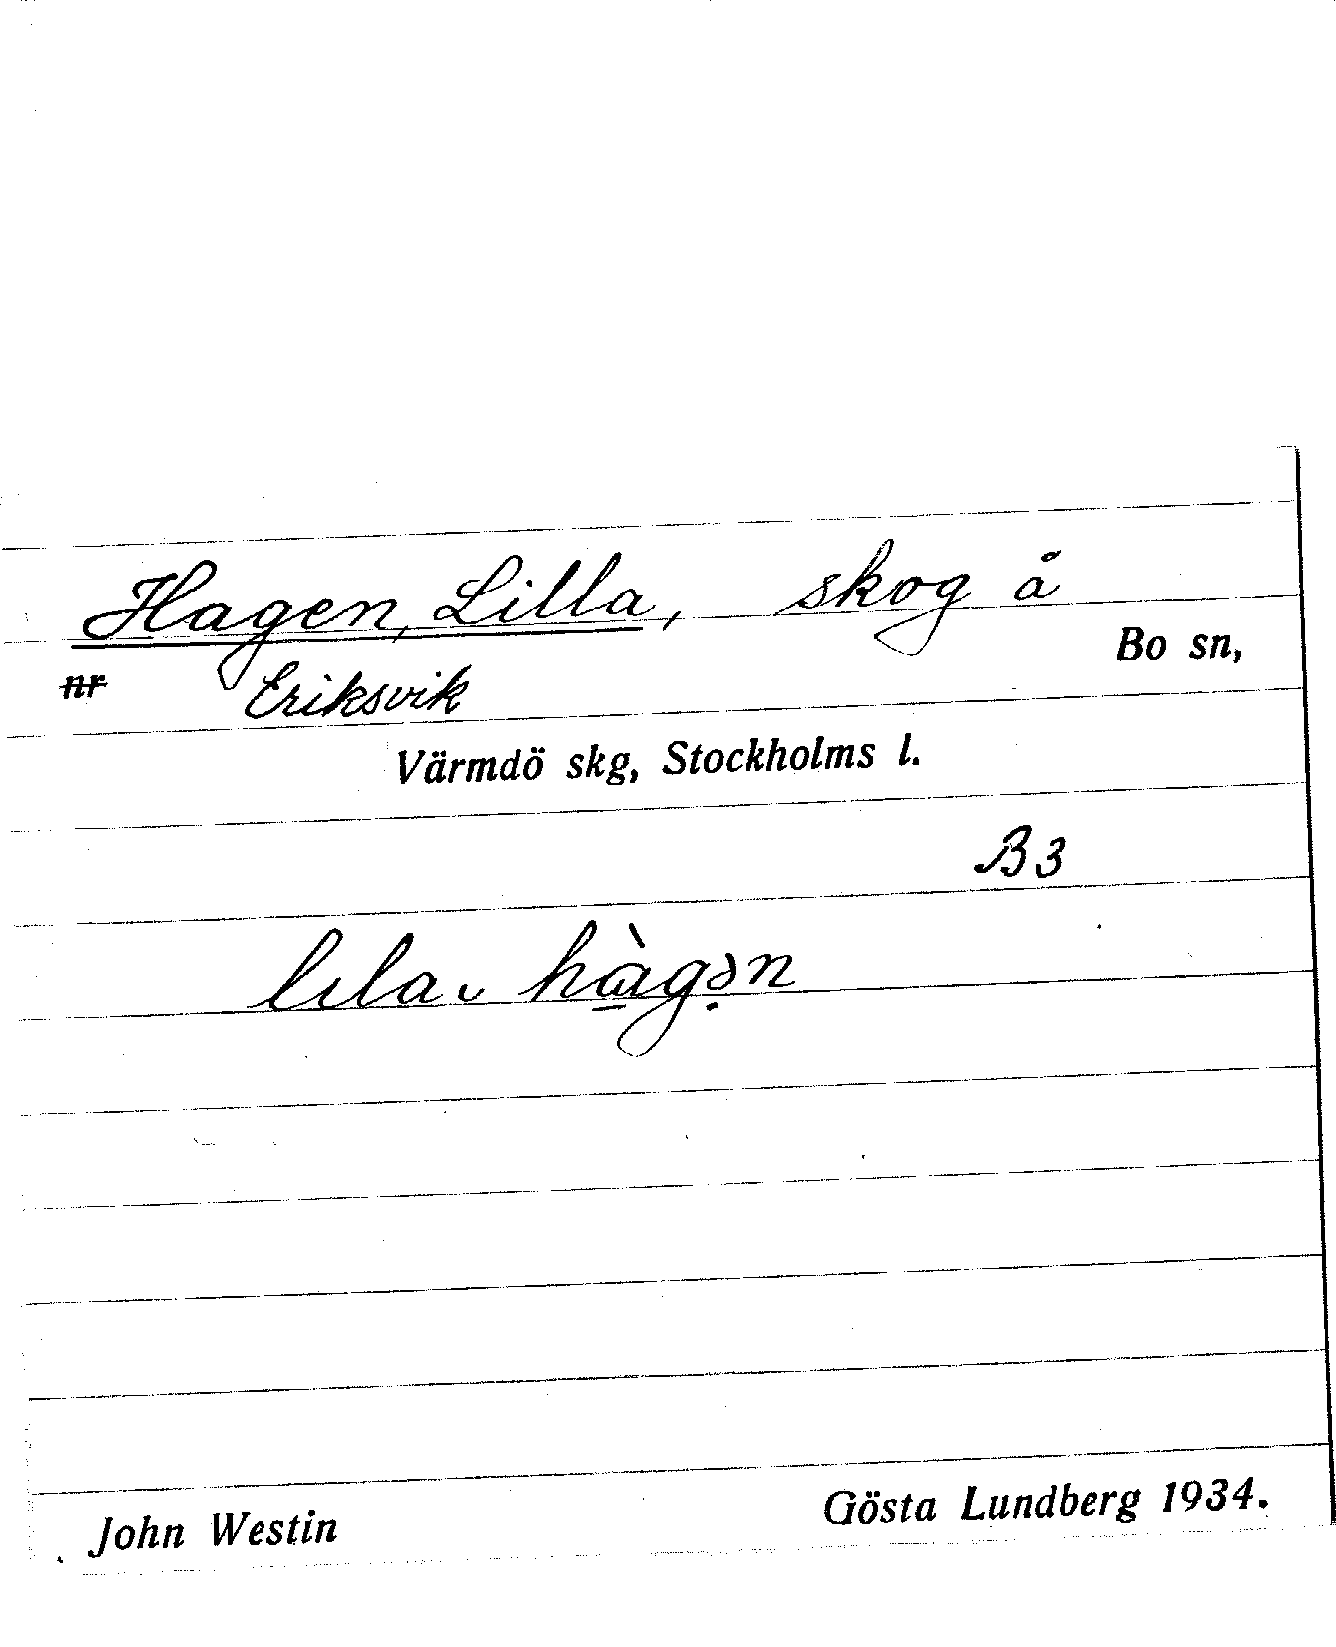 Hagen, Lilla, skog å
Bo sn,
nr Eriksvik
Värmdö skg, Stockholms l.
B3
lıla ᴗ hàgən
John Westin Gösta Lundberg 1934.